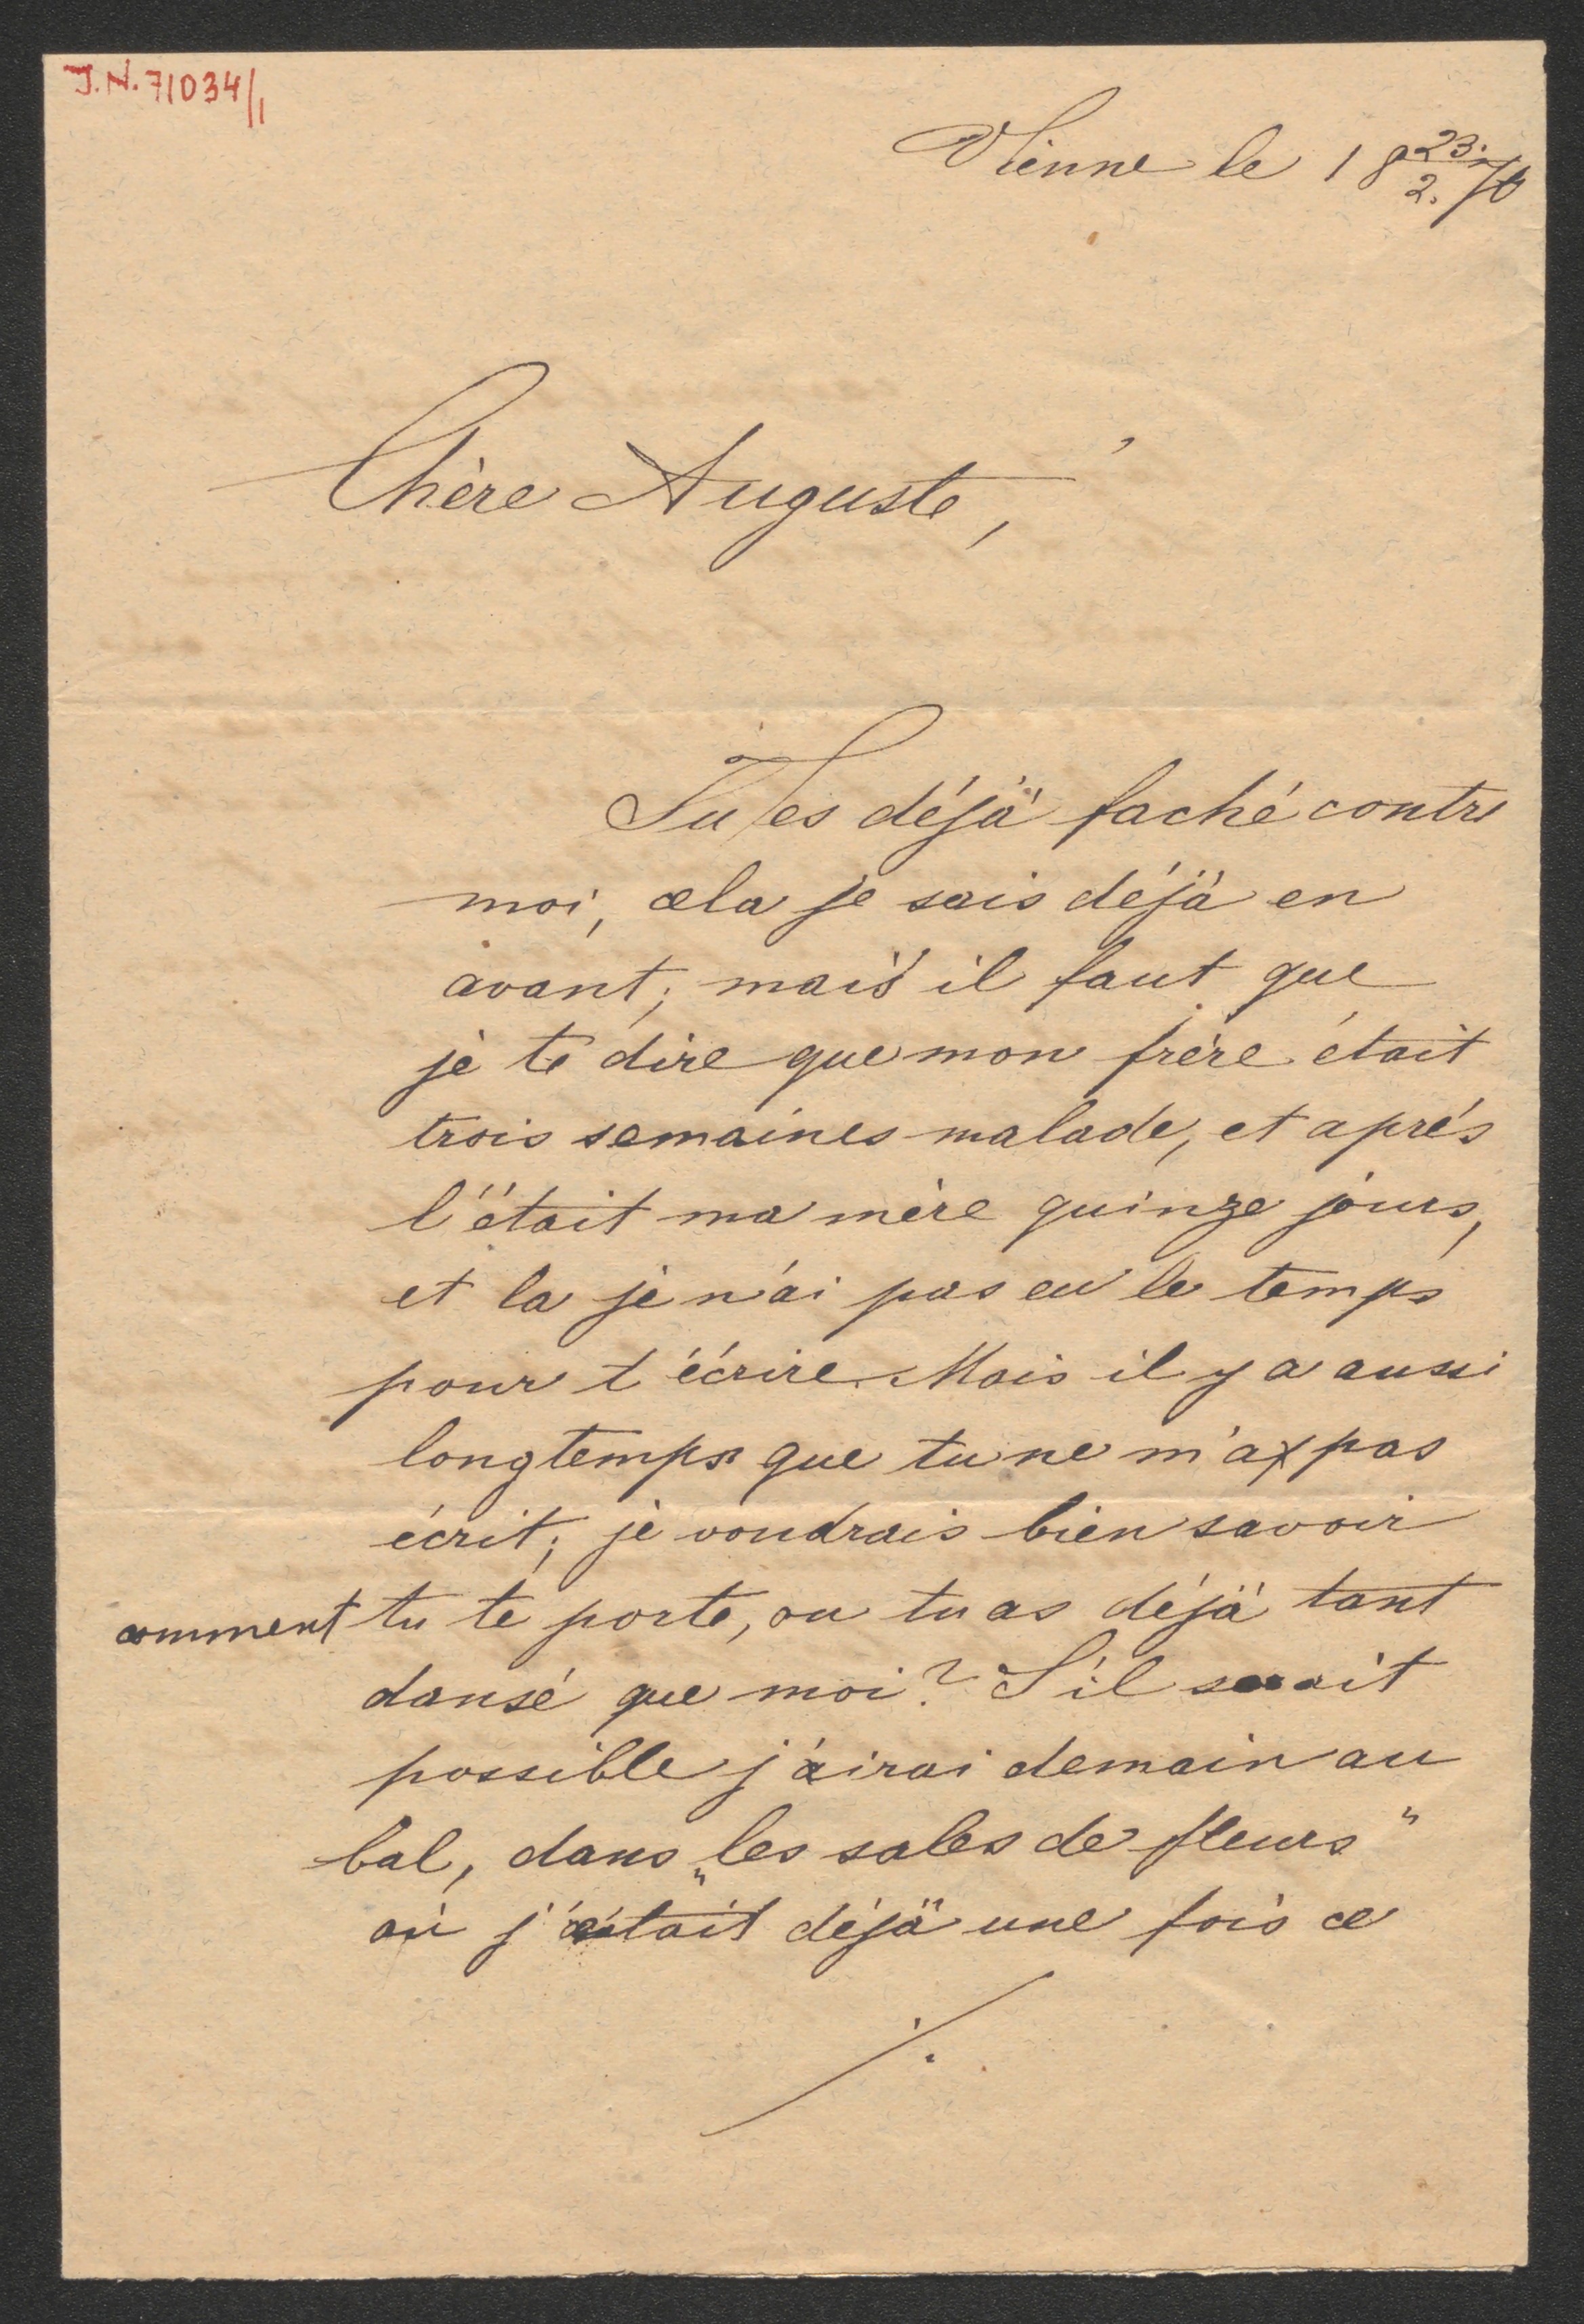 J.N. 71034/1
Vienne le 18 23./2. 76
Chère Auguste,
Tu es déjà faché contre
moi, cela je sais déjà en
avant; mais il faut que
je te dire que mon frère était
trois semaines malade, et aprés
l'était ma mère quinze jours,
et la je n'ai pas eu le temps
pour t'écrire. Mais il y a aussi
longtemps que tu ne m'as pas
écrit; je voudrais bien savoir
comment tu te porte, ou tu as déjà tant
dansé que moi? S'il serait
possible j'irai demain au
bal, dans „les sales de fleurs"
où j'était déjà une fois ce
./.